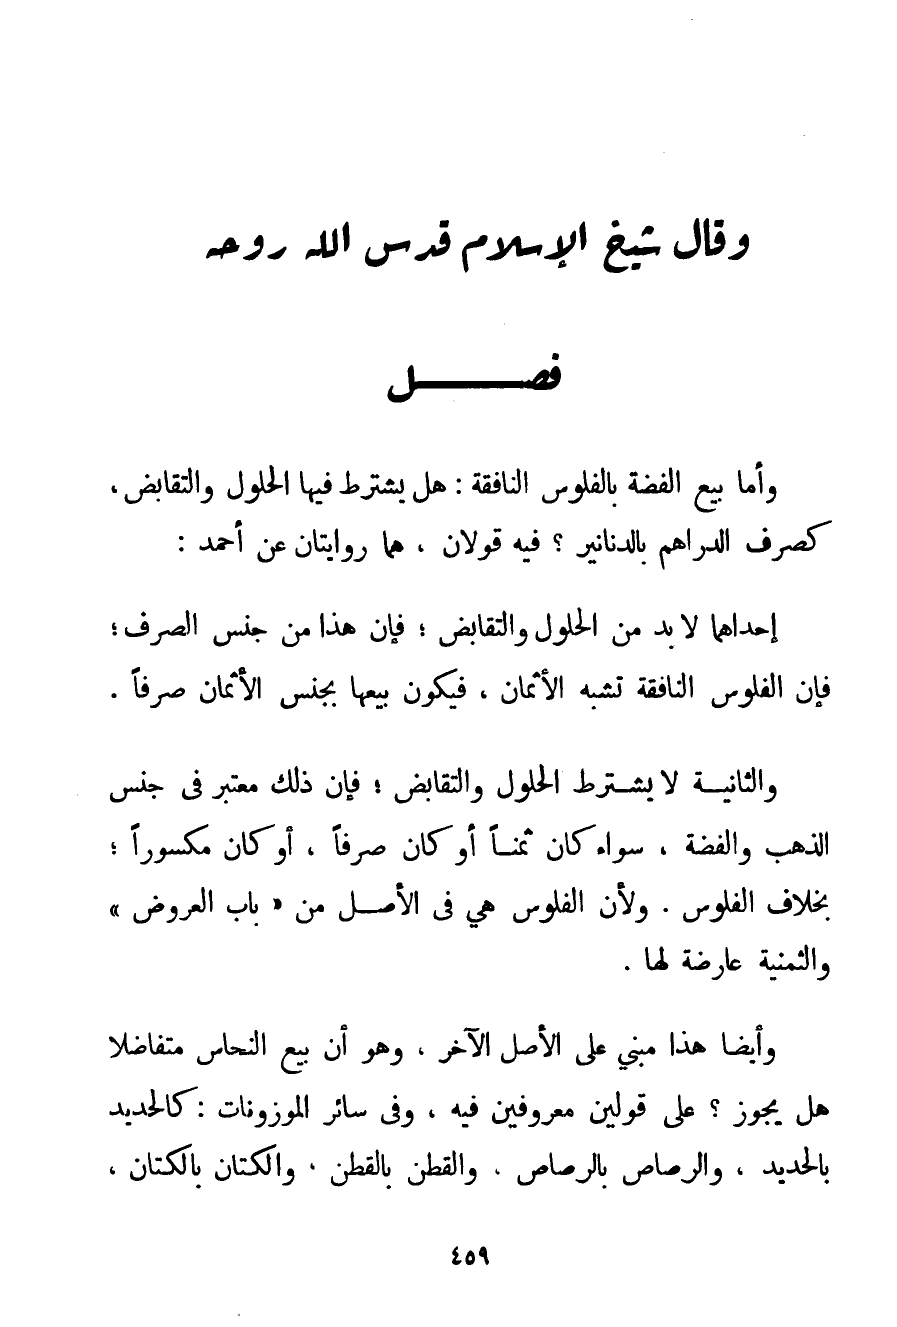 وقال شيخ الإسلام قدس الله روحه
فصل
وأما بيع الفضة بالفلوس النافقة : هل يشترط فيها الحلول والتقابض ،
كصرف الدراهم بالدنانير ؟ فيه قولان ، هما روايتان عن أحمد :
إحداهما لا بد من الحلول والتقابض ؛ فإن هذا من جنس الصرف ؛
فإن الفلوس النافقة تشبه الأثمان ، فيكون بيعها بجنس الأثمان صرفاً .
والثانية لا يشترط الحلول والتقابض ؛ فإن ذلك معتبر فى جنس
الذهب والفضة ، سواء كان ثمناً أو كان صرفاً ، أو كان مكسوراً ؛
بخلاف الفلوس . ولأن الفلوس هي فى الأصل من « باب العروض »
والثمنية عارضة لها .
وأيضا هذا مبني على الأصل الآخر ، وهو أن بيع النحاس متفاضلا
هل يجوز ؟ على قولين معروفين فيه ، وفى سائر الموزونات : كالحديد
بالحديد ، والرصاص بالرصاص . والقطن بالقطن . والكتان بالكتان ،
٤٥٩